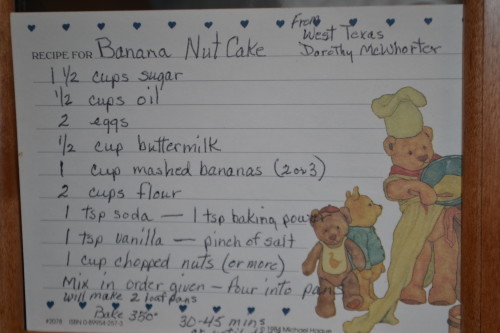 From
West Texas
RECIPE FOR Banana Nut Cake Dorothy McWhorter
1 1/2 cups sugar
1/2 cups oil
2 eggs
1/2 cup buttermilk
1 cup mashed bananas (2 or 3)
2 cups flour
1 tsp soda — 1 tsp baking power
1 tsp vanilla — pinch of salt
1 cup chopped nuts (or more)
Mix in order given — Pour into pans
will make 2 loaf pans
Bake 350° 30-45 mins
Michael Hague